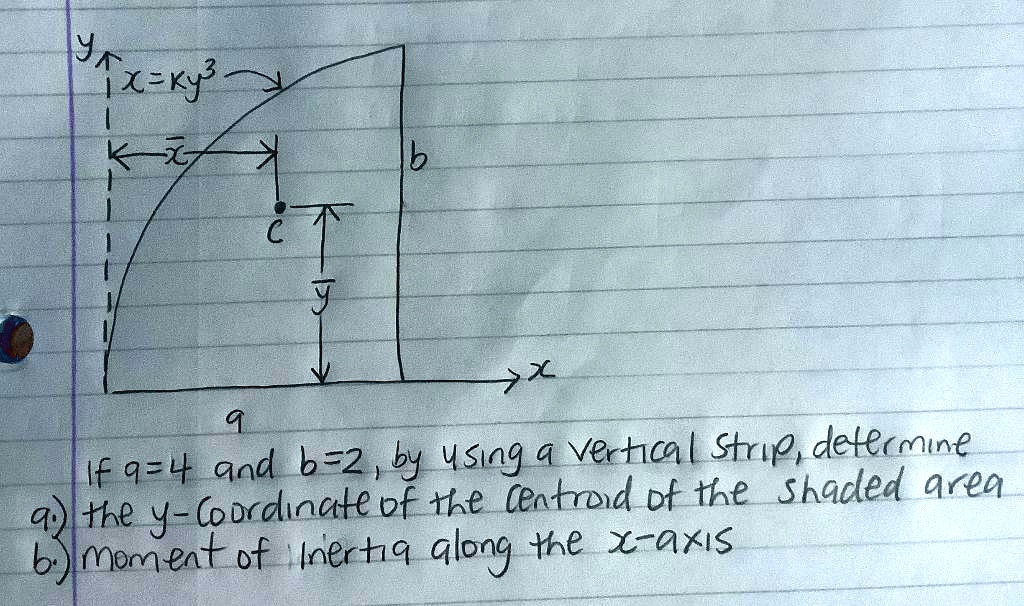 y
x=Ky³
x̄
b
C
ȳ
x
a
If a=4 and b=2, by using a vertical strip, determine
a.) the y-coordinate of the centroid of the shaded area
b.) moment of inertia along the x-axis